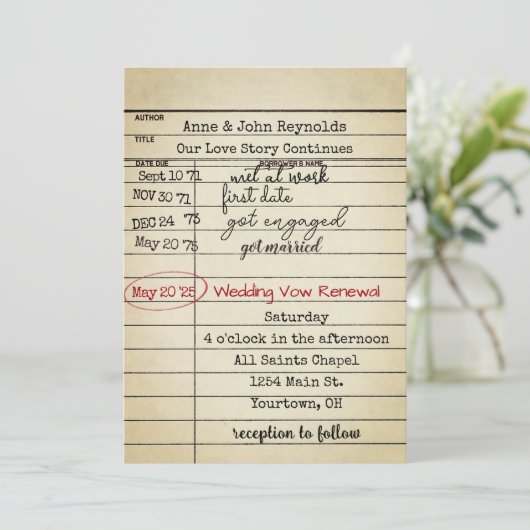 AUTHOR
Anne & John Reynolds
TITLE
Our Love Story Continues
DATE DUE BORROWER'S NAME
Sept 10 '71 met at work
NOV 30 '71 first date
DEC 24 '73 got engaged
May 20 '75 got married
May 20 '25 Wedding Vow Renewal
Saturday
4 o'clock in the afternoon
All Saints Chapel
1254 Main St.
Yourtown, OH
reception to follow